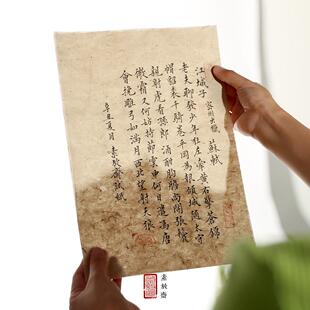 江城子 密州出獵 蘇軾
老夫聊發少年狂左牽黃右擎蒼錦
帽貂裘千騎卷平岡為報傾城隨太守
親射虎看孫郎酒酣胸膽尚開張鬢
微霜又何妨持節雲中何日遣馮唐
會挽雕弓如滿月西北望射天狼
辛丑夏月 素齋試紙
素齋